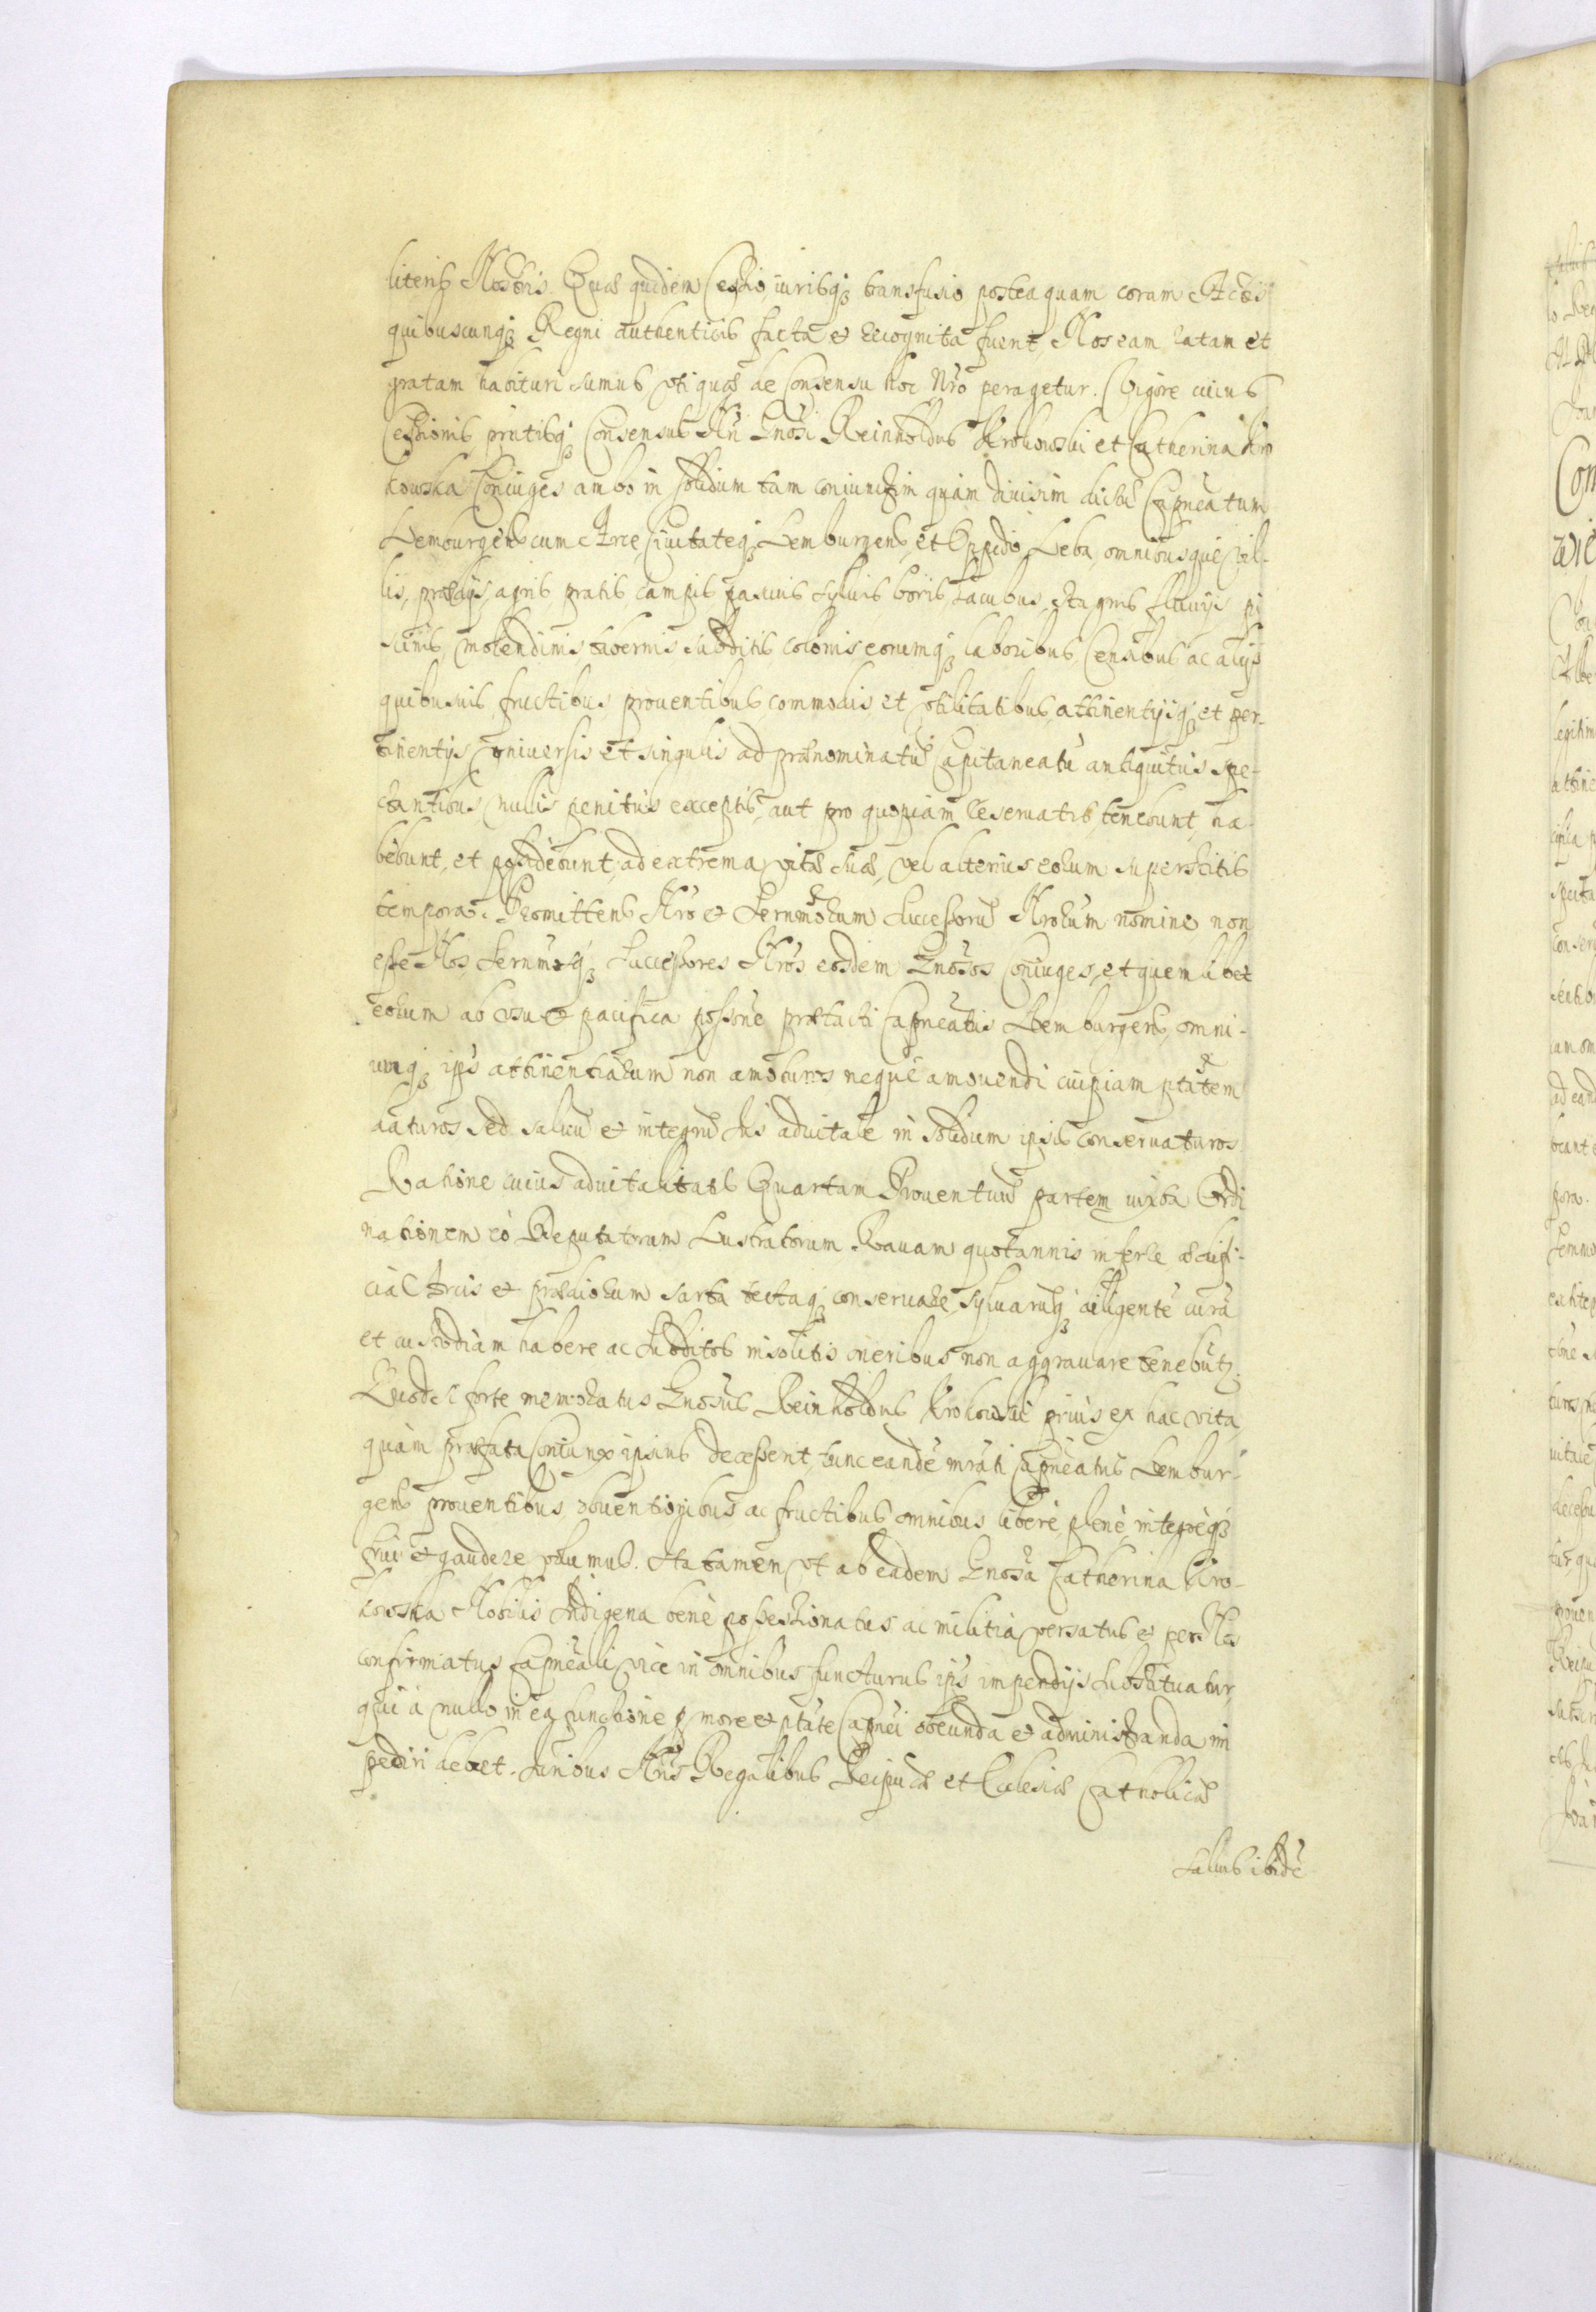 literis Nostris. Quae quidem Cessio, iurisq3 transfusio postea quam coram Actis
quibuscunq3 Regni authenticis facta et recognita fuerit, Nos eam ratam et
gratam habituri sumus, uti quae de Consensu hoc Nro peragetur. Vigore cuius
Cessionis, pntisq3 Consensus Nri Gnosi Reinholdus Krokowski et Catherina Kro
kowska Coniuges ambo in solidum tam coniunctim quàm diuisim dictũ Capneatum
Lemburgens cum Arce, Ciuitateq3 Lemburgens, et Oppido Leba, omnibusque Vil-
lis, praedijs, agris, pratis, campis, pascuis, syluis, boris, lacubus, stagnis, fluuijs, pi
scinis, molendinis, tabernis, subditis, colonis, eorumq3 laboribus, Censibus ac alijs
quibusuis fructibus, prouentibus, commodis, et vtilitatibus, attinentijsq3 et per-
tinentijs vniuersis et singulis ad praenominatũ Capitaneatũ antiquitùs spe-
ctantibus, nullis penitùs exceptis, aut pro quopiam reseruatis, tenebunt, ha-
bebunt, et possidebunt, ad extrema vitae suae, vel alterius eorum superstitis
tempora. Promittens Nro et Sernmorum Successorũ Nrorum nomine non
esse Nos, Sernmosq3 Successores Nros eosdem Gnosos Coniuges, et quemlibet
eorum ab vsu et pacifica possone praefacti Capneatus Lemburgens, omni-
umq3 ips attinentiarum non amoturos, neque amouendi cuipiam ptatem
daturos, sed saluũ et integrũ Ius aduitale in solidum ipsis conseruaturos
Ratione cuius aduitalitatis Quartam Prouentuũ partem iuxta Ordi
nationem eò Deputatorum Lustratorum Rauam quotannis inferre aedifi-
cia Arcis et praediorum sarta tectaq3 conseruare, syluarũq3 diligentẽ curã
et custodiam habere ac subditos insolitis oneribus non aggrauare tenebũtr.
Quod si forte memoratus Gnosus Reinholdus Krokowski priùs ex hac vita,
quàm praefata Coniunx ipsius decesserit, tunc eandẽ mrati Capneatus Lembur-
gens prouentibus obuentionibus ac fructibus omnibus liberè, plenè, integrèq3
frui et gaudere volumus. Ita tamen, vt ab eadem Gnosa Catherina Kro-
kowska Nobilis Indigena benè possessionatus ac militia versatus et per Nos
confirmatus Capneali vice in omnibus functurus ips impendijs substituatur,
qui à nullo in ea functione p more et ptate Capnei obeunda et administranda im
pediri debet. Iuribus Nris Regalibus Reipucae et Ecclesiae Catholicae
saluis ibidẽ